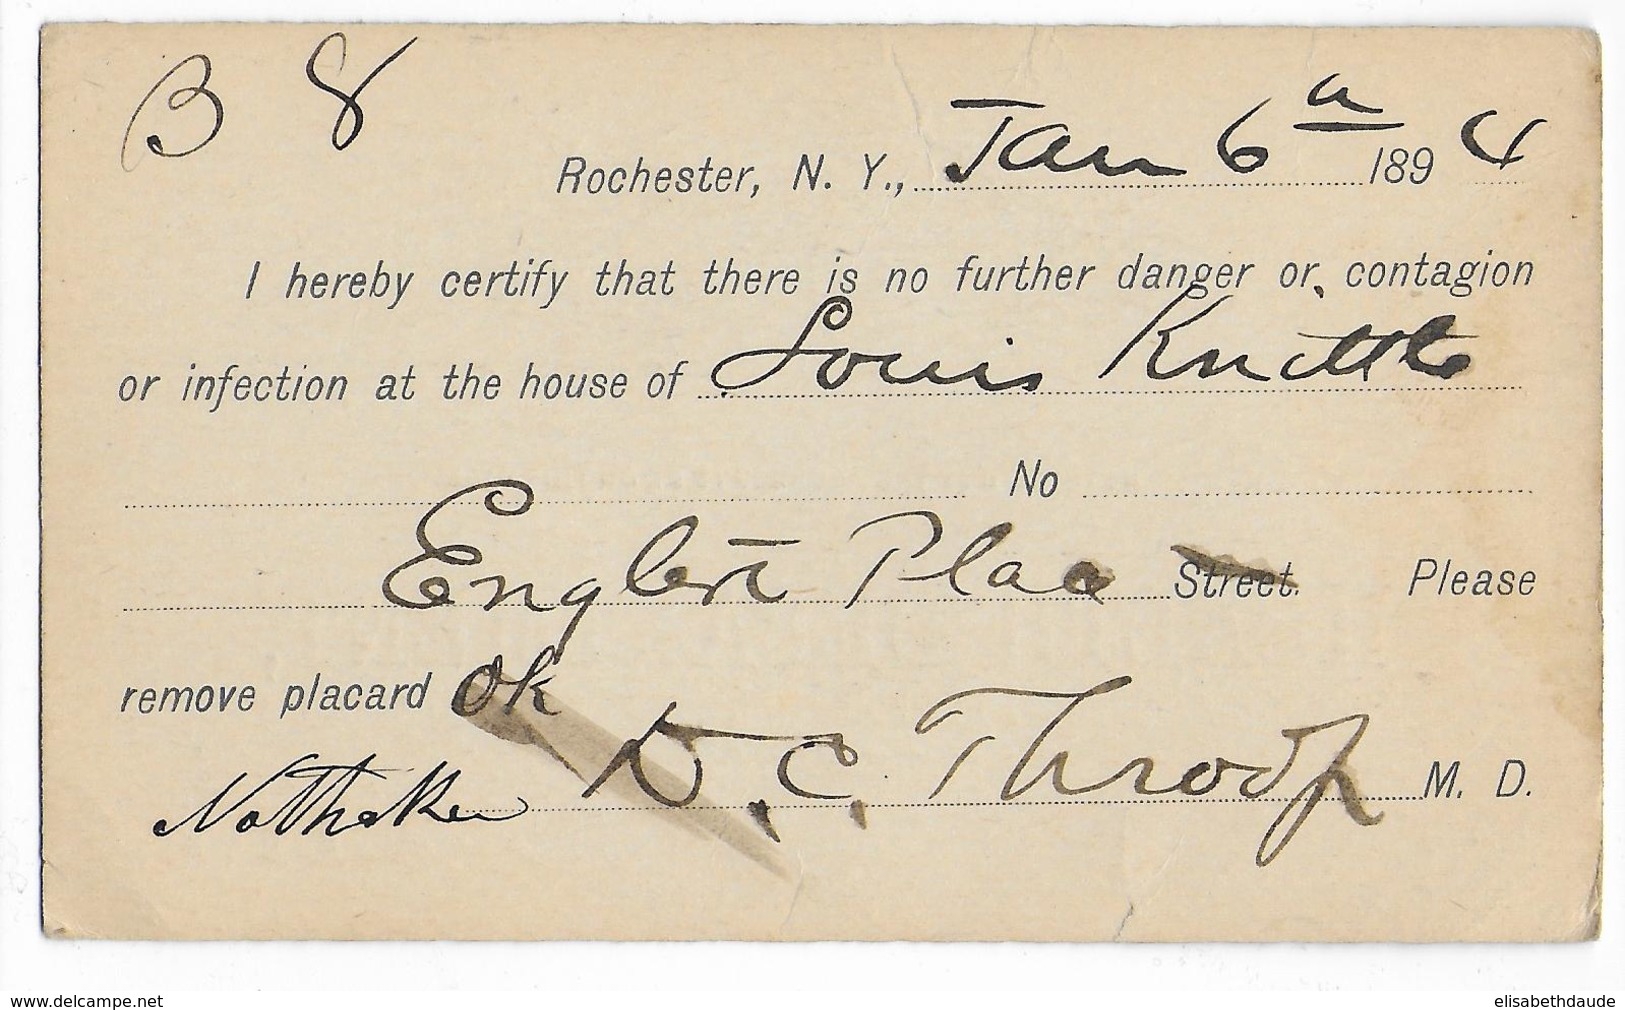 B 8
Rochester, N. Y., Jan 6 a 1894
I hereby certify that there is no further danger or contagion
or infection at the house of Louis
No
Englert Place Street. Please
remove placard Ok
D. C. Throop M. D.
www.delcampe.net
elisabethdaude